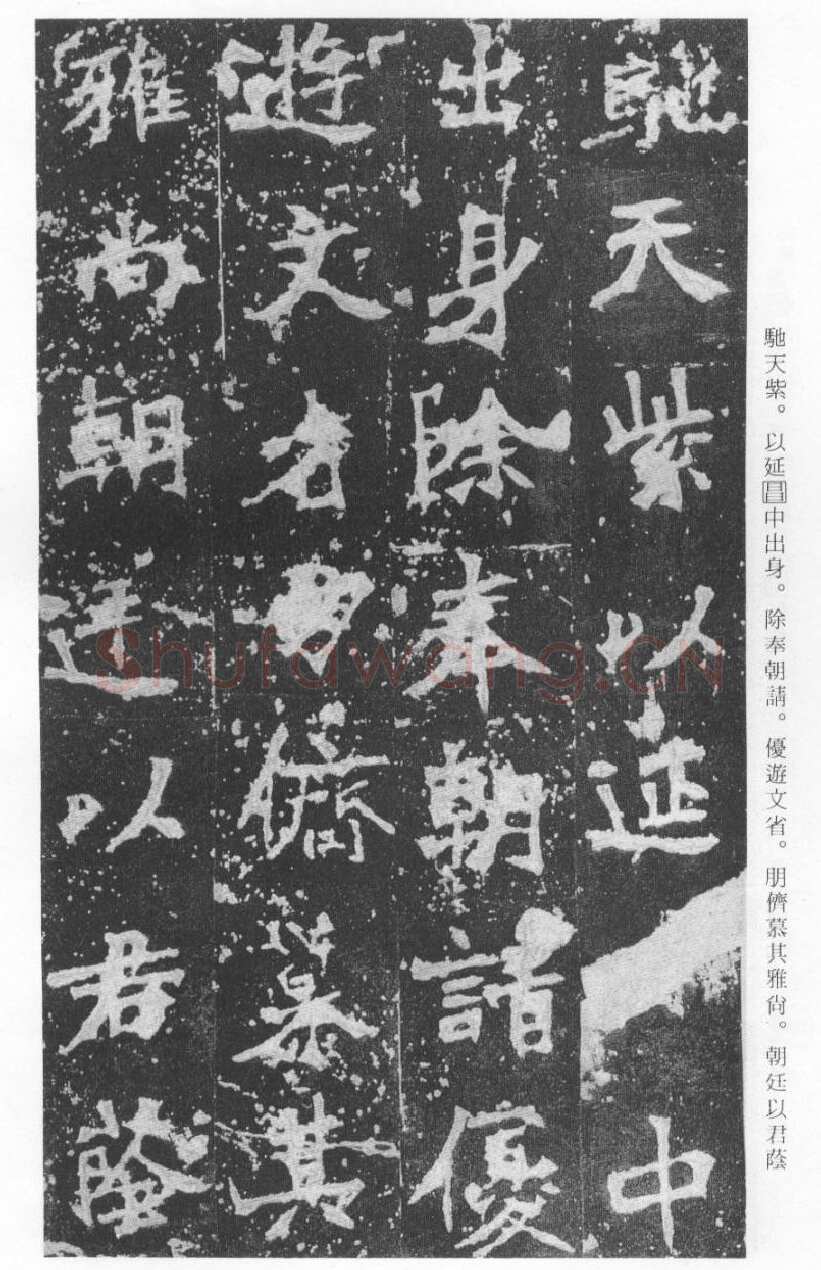 馳天紫以延中
出身除奉朝請優
遊文省朋儕慕其
雅尚朝廷以君蔭
馳天紫。以延昌中出身。除奉朝請。優遊文省。朋儕慕其雅尙。朝廷以君蔭
Shufawang.CN